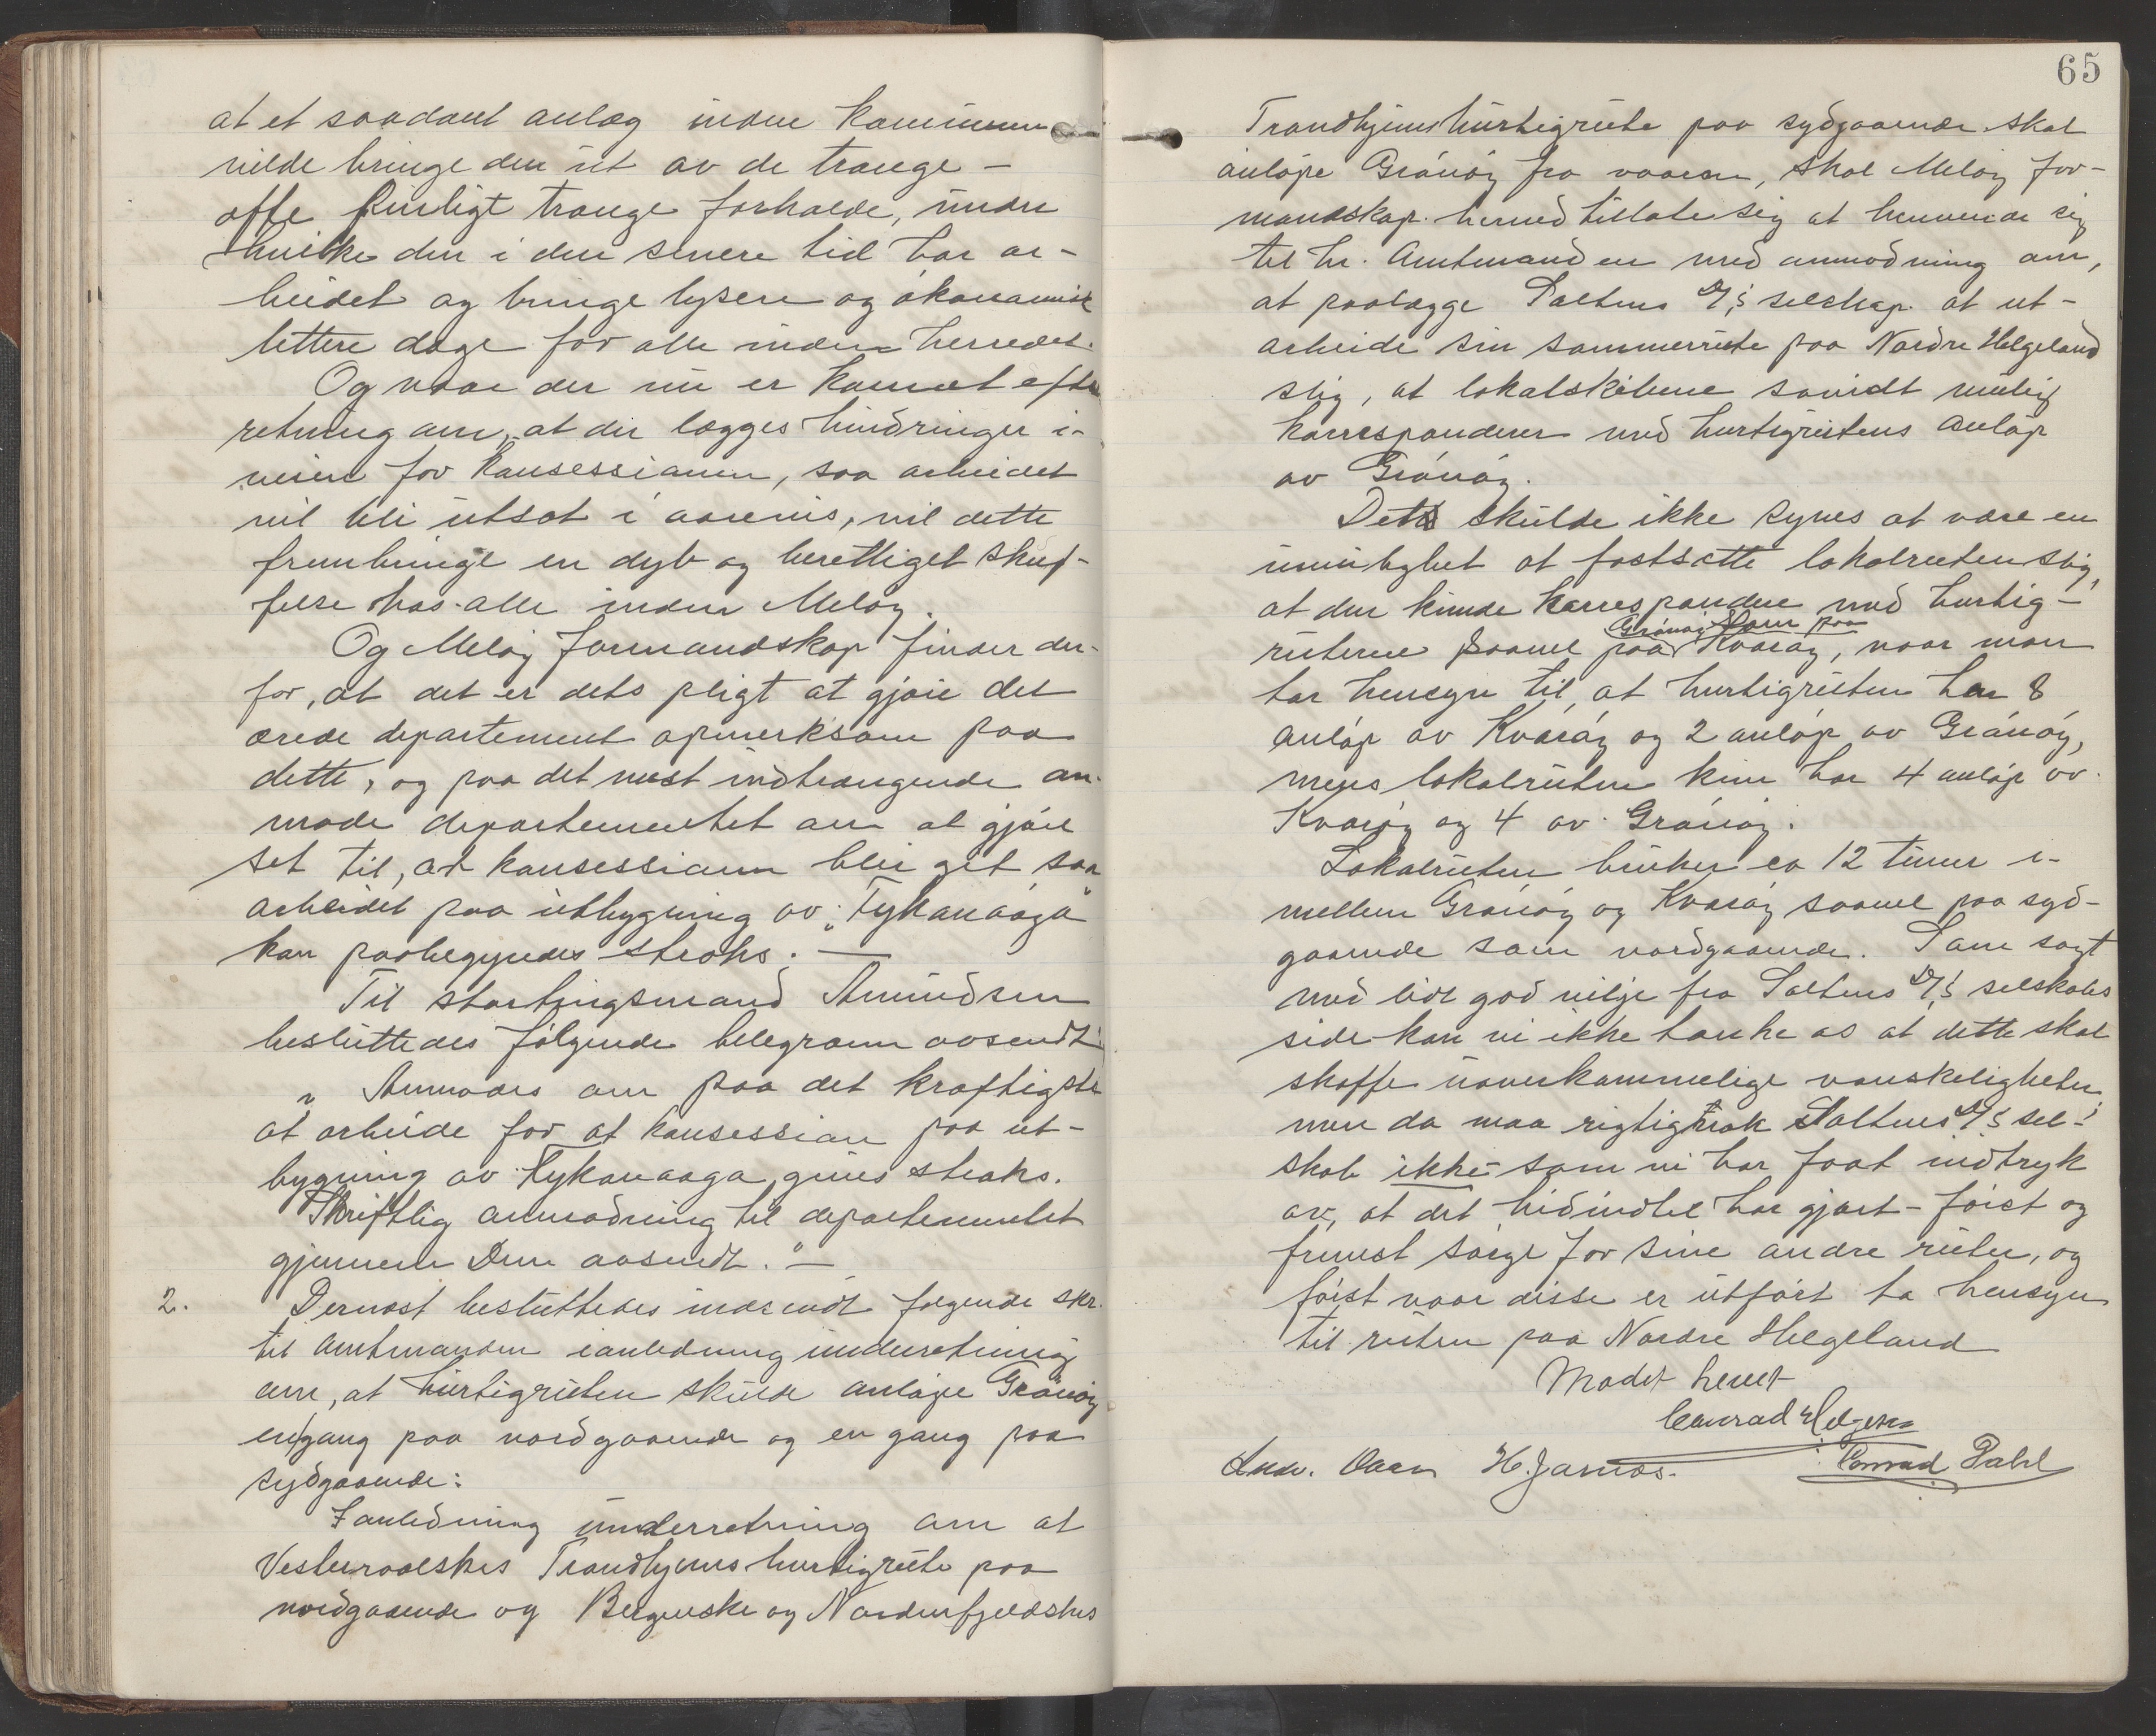 at et saadant anlæg inden kommunen
vilde bringe den ut av de trange –
ofte pinligt trange forholde, under
hvilke den i den senere tid har ar-
beidet og bringe lysere og økonomisk
lettere dage for alle inden herredet.
Og naar der nu er kommet efter
retning om, at der lægges hindringer i
veien for konsessionen, saa arbeidet
vil bli utsat i aarevis, vil dette
frembringe en dyb og berettiget skuf-
felse hos alle inden Meløy.
Og Meløy formandskap finder der-
for, at det er dets pligt at gjøre det
ærede departement opmerksom paa
dette, og paa det mest indtrængende an-
mode departementet om at gjøre
set til, at konsessionen blir git saa
arbeidet paa utbygning av „Fykanaaga"
kan paabegyndes straks. —
Til stortingsmand Amundsen
besluttedes følgende telegram avsendt:
„ Anmodes om paa det kraftigste
at arbeide for at konsession paa ut-
bygning av Fykanaaga gives straks.
Skriftlig anmodning til departementet
gjennem Dem avsendt." —
2. Dernæst besluttedes indsendt følgende skr.
til amtmanden ianledning underretning
om, at hurtigruten skulde anløpe Grønøy
engang paa nordgaaende og en gang paa
sydgaaende:
I anledning underretning om at
Vesteraalskes Trondhjems hurtigrute paa
nordgaaende og Bergenske og Nordenfjeldskes
65
Trondhjems hurtigrute paa sydgaaende skal
anløpe Grønøy fra vaaren, skal Meløy for-
mandskap herved tillate sig at henvende sig
til hr. Amtmanden med anmodning om,
at paalægge Saltens D/S selskap at ut-
arbeide sin sommerrute paa Nordre Helgeland
slig, at lokalskibene savidt mulig
korresponderer med hurtigrutens anløp
av Grønøy.
Det skulde ikke synes at være en
umulighet at fastsætte lokalruten slig,
at den kunde korrespondere med hurtig-
Grønøy som paa
ruterne saavel paa Kvarøy, naar man
tar hensyn til, at hurtigruten har 8
anløp av Kvarøy og 2 anløp av Grønøy,
mens lokalruten kun har 4 anløp av
Kvarøy og 4 av Grønøy.
Lokalruten bruker ca 12 timer i-
mellem Grønøy og Kvarøy saavel paa syd-
gaaende som nordgaaende. Som sagt
med lidt god vilje fra Saltens D/S selskabs
side kan vi ikke tænke os at dette skal
skaffe uoverkommelige vanskeligheter,
men da maa rigtignok Saltens D/S sel-
skab ikke som vi har faat indtryk
av, at det hidindtil har gjort – først og
fremst sørge for sine andre ruter, og
først naar disse er utført ta hensyn
til ruten paa Nordre Helgeland
Mødet hevet
Conrad Helgesen
Ludv. Olsen H. Jarnæs. Conrad Dahl